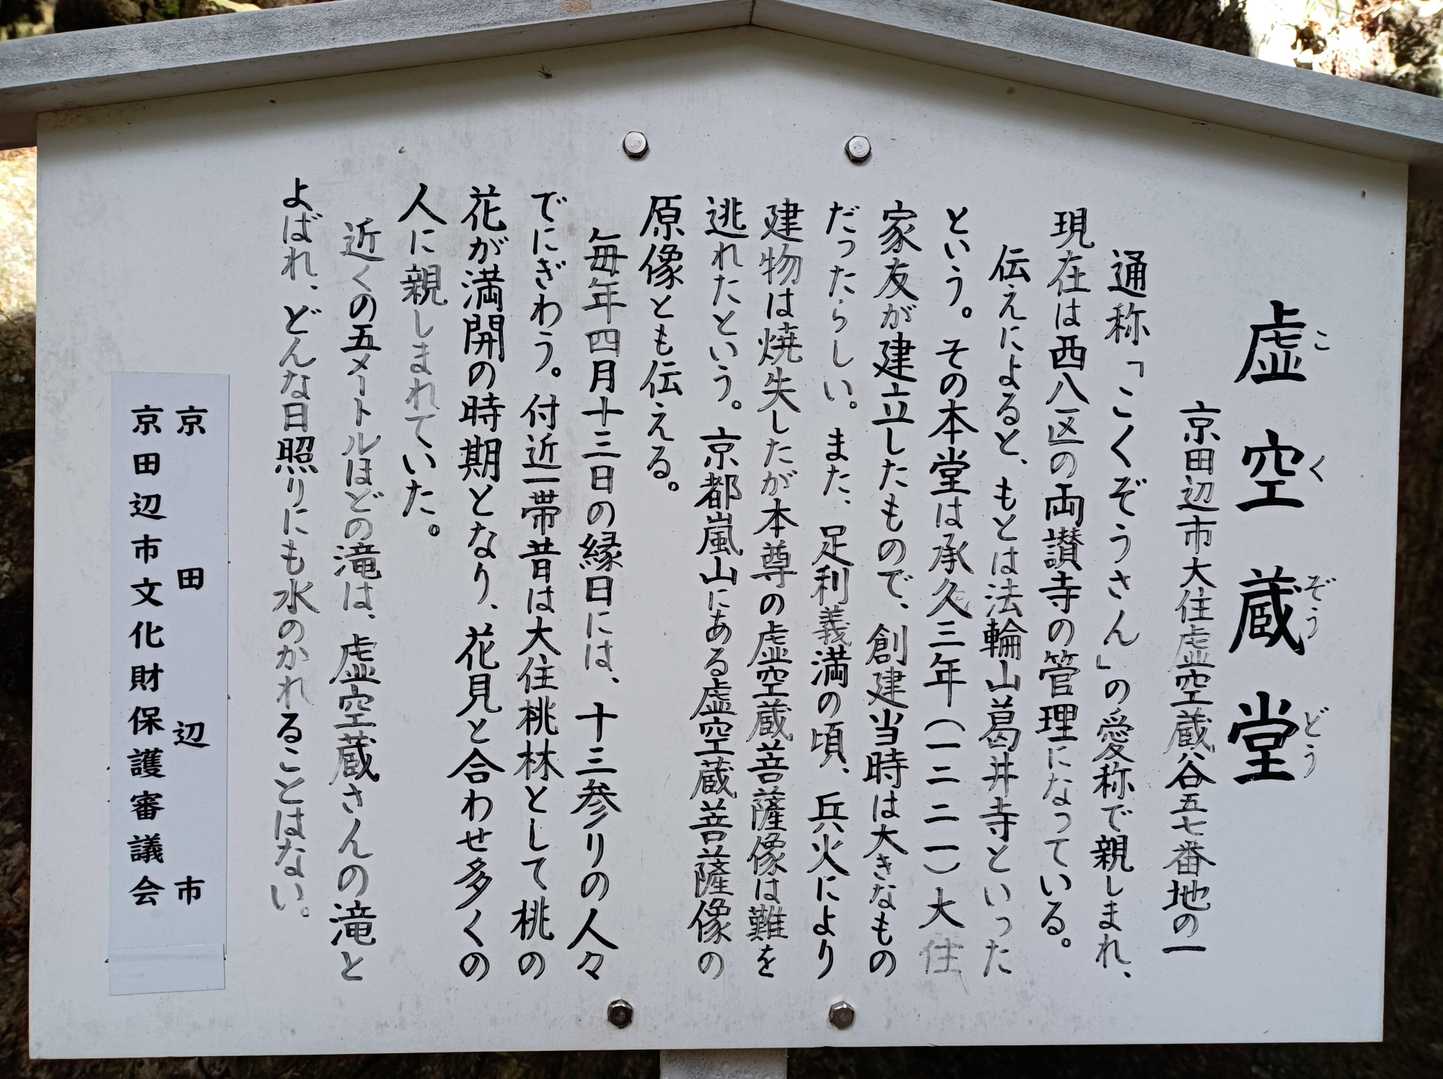 虚空蔵堂
こくぞうどう
京田辺市大住虚空蔵谷五七番地の一
通称「こくぞうさん」の愛称で親しまれ、
現在は西八区の両讃寺の管理になっている。
伝えによると、もとは法輪山葛井寺といった
という。その本堂は承久三年(一二二一)大住
家友が建立したもので、創建当時は大きなもの
だったらしい。また、足利義満の頃、兵火により
建物は焼失したが本尊の虚空蔵菩薩像は難を
逃れたという。京都嵐山にある虚空蔵菩薩像の
原像とも伝える。
毎年四月十三日の縁日には、十三参りの人々
でにぎわう。付近一帯昔は大住桃林として桃の
花が満開の時期となり、花見と合わせ多くの
人に親しまれていた。
近くの五メートルほどの滝は、虚空蔵さんの滝と
よばれ、どんな日照りにも水のかれることはない。
京田辺市
京田辺市文化財保護審議会